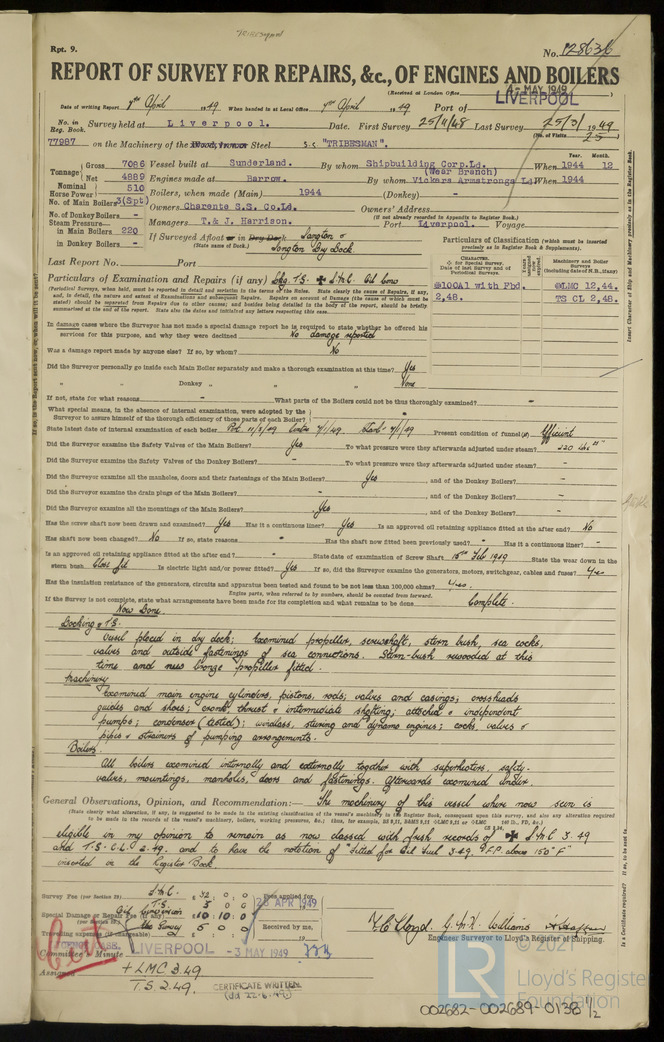 Rpt. 9.
No. 128636
REPORT OF SURVEY FOR REPAIRS, &c., OF ENGINES AND BOILERS
(Received at London Office 4 - MAY 1949)
Date of writing Report 7th April 1949 When handed in at Local Office 7th April 1949 Port of LIVERPOOL
No. in Reg. Book. Survey held at Liverpool. Date. First Survey 25/11/48 Last Survey 25/3/1949
(No. of Visits 25)
77987 on the Machinery of the Wood, Iron or Steel S.S "TRIBESMAN".
Tonnage Gross 7086 Vessel built at Sunderland. By whom Shipbuilding Corp.Ld. (Wear Branch) When Year. 1944 Month. 12
Net 4889 Engines made at Barrow. By whom Vickers Armstrongs Ld When 1944
Nominal Horse Power 510 Boilers, when made (Main) 1944 (Donkey) -
No. of Main Boilers 3(Spt) Owners Charente S.S. Co.Ld. Owners' Address
(if not already recorded in Appendix to Register Book.)
No. of Donkey Boilers - Managers T. & J. Harrison. Port Liverpool. Voyage
Steam Pressure— in Main Boilers 220 If Surveyed Afloat or in Dry Dock Langton &
in Donkey Boilers - (State name of Dock.) Langton Dry Dock.
Particulars of Classification (which must be inserted precisely as in Register Book & Supplements).
Last Report No. Port
CHARACTER. for Special Survey. Date of last Survey and of Periodical Surveys.
Machinery and Boiler Surveys (including date of N.B., if any)
100A1 with Fbd. LMC 12,44.
2,48. TS CL 2,48.
Insert Character of Ship and Machinery precisely as in the Register Book.
Particulars of Examination and Repairs (if any) Dkg. T.S. ✠ LMC Oil Conv
In damage cases where the Surveyor has not made a special damage report he is required to state whether he offered his
services for this purpose, and why they were declined No damage reported
Was a damage report made by anyone else? If so, by whom? No
Did the Surveyor personally go inside each Main Boiler separately and make a thorough examination at this time? Yes
" " Donkey " " " None
If not, state for what reasons - What parts of the Boilers could not be thus thoroughly examined? -
What special means, in the absence of internal examination, were adopted by the
Surveyor to assure himself of the thorough efficiency of those parts of each Boiler?
State latest date of internal examination of each boiler Port 11/2/49 Centre 4/1/49 Starb 4/1/49 Present condition of funnel(s) Efficient
Did the Surveyor examine the Safety Valves of the Main Boilers? Yes To what pressure were they afterwards adjusted under steam? 220 lbs
Did the Surveyor examine the Safety Valves of the Donkey Boilers? - To what pressure were they afterwards adjusted under steam? -
Did the Surveyor examine all the manholes, doors and their fastenings of the Main Boilers? Yes, and of the Donkey Boilers? -
Did the Surveyor examine the drain plugs of the Main Boilers? -, and of the Donkey Boilers? -
Did the Surveyor examine all the mountings of the Main Boilers? Yes, and of the Donkey Boilers? -
Has the screw shaft now been drawn and examined? Yes Has it a continuous liner? Yes Is an approved oil retaining appliance fitted at the after end? No
Has shaft now been changed? No If so, state reasons - Has the shaft now fitted been previously used? - Has it a continuous liner? -
Is an approved oil retaining appliance fitted at the after end? - State date of examination of Screw Shaft 15th Feb 1949 State the wear down in the
stern bush Close fit Is electric light and/or power fitted? Yes If so, did the Surveyor examine the generators, motors, switchgear, cables and fuses? Yes
Has the insulation resistance of the generators, circuits and apparatus been tested and found to be not less than 100,000 ohms? Yes.
Engine parts, when referred to by numbers, should be counted from forward.
If the Survey is not complete, state what arrangements have been made for its completion and what remains to be done Complete.
Now Done
Docking & T.S.
Vessel placed in dry dock; Examined propeller, screwshaft, stern bush, sea cocks,
valves and outside fastenings of sea connections. Stern-bush rewooded at this
time and new bronze propeller fitted.
Machinery
Examined main engine cylinders, pistons, rods, valves and casings; crossheads
guides and shoes; crank, thrust & intermediate shafting; attached & independent
pumps; condenser (tested); windlass, steering and dynamo engines; cocks, valves &
pipes & strainers of pumping arrangements.
Boilers
All boilers examined internally and externally together with superheaters, safety-
valves, mountings, manholes, doors and fastenings. Afterwards examined under
General Observations, Opinion, and Recommendation:— The machinery of this vessel where now seen is
eligible in my opinion to remain as now classed with fresh records of ✠ LMC 3.49
and T.S. C.L. 2.49. and to have the notation of "Fitted for Oil Fuel 3.49. F.P. above 150°F"
inserted in the Register Book.
Survey Fee (per Section 29) LMC £ 32 : 0 : 0
T.S. 3 0 0
Special Damage or Repair Fee (if any) £ 10 : 10 : 0
Fees applied for 28 APR 1949
Received by me,
Engineer Surveyor to Lloyd's Register of Shipping.
Committee's Minute LIVERPOOL - 3 MAY 1949
Assigned + LMC 3.49
T.S. 2.49.
Cert
CERTIFICATE WRITTEN
(dd 22-6-49)
Is a Certificate required?
© 2021
LR
Lloyd's Register
Foundation
002682-002689-0138 1/2